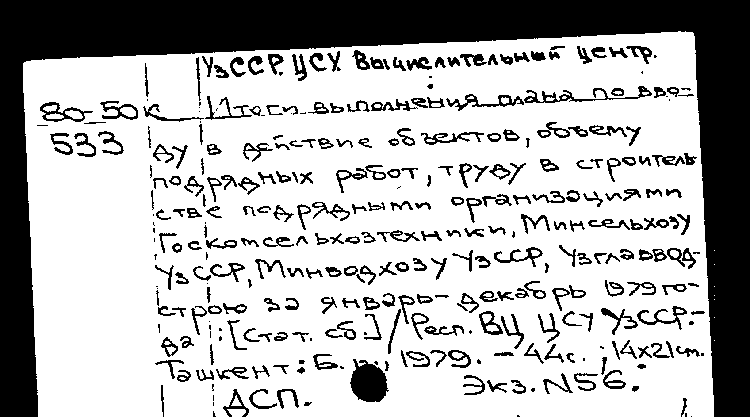 УзССР. ЦСУ. Вычислительный центр.
80-50к Итоги выполнения плана по вво-
533 ду в действие объектов, объему
подрядных работ, труду в строитель
стве подрядными организациями
Госкомсельхозтехники, Минсельхозу
УзССР, Минводхозу УзССР, Узглаввод-
строю за январь-декабрь 1979 го-
да : [Стат. сб.] / Респ. ВЦ ЦСУ УзССР.-
Ташкент: Б. и., 1979. - 44с. ; 14х21см.
ДСП. Экз. N56.